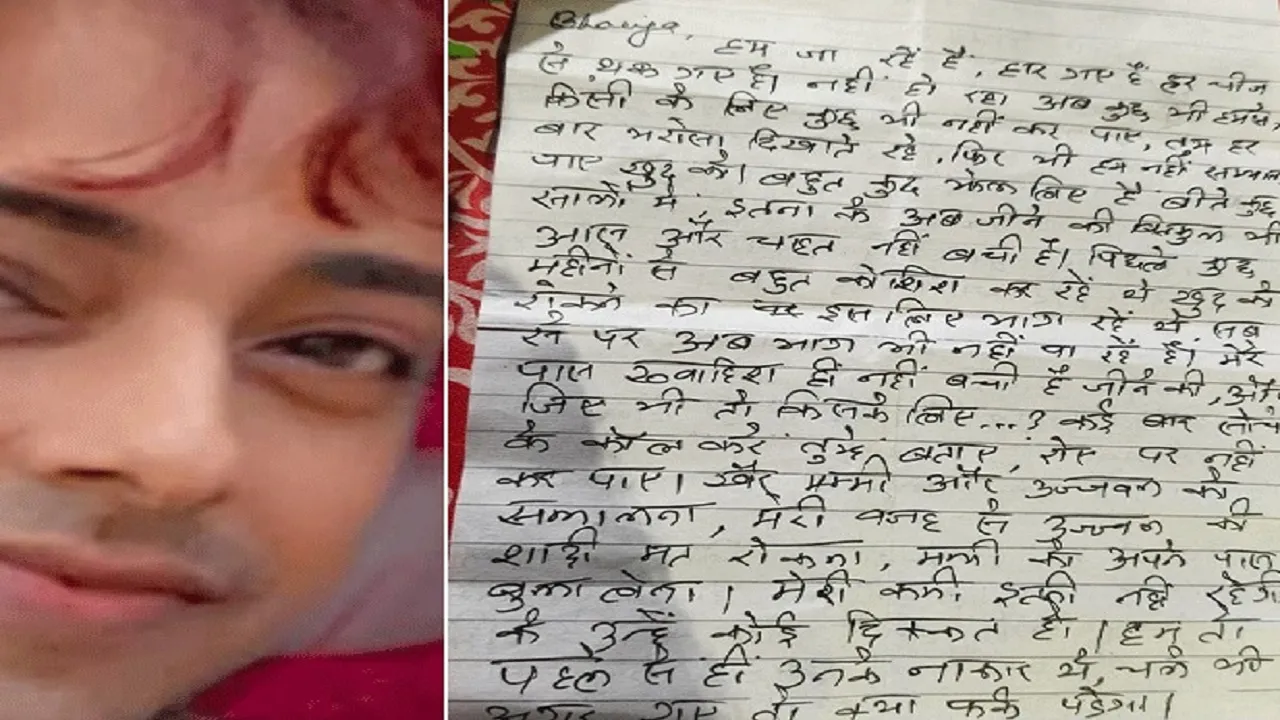 Bhaiya, हम जा रहें हैं, हार गए हैं हर चीज
से थक गए हैं। नहीं हो रहा अब कुछ भी हमसे,
किसी के लिए कुछ भी नहीं कर पाए, तुम हर
बार भरोसा दिखाते रहे, फिर भी हम नहीं सम्भाल
पाए खुद को। बहुत कुछ झेल लिए हैं बीते कुछ
सालों में, इतना के अब जीने की बिल्कुल भी
आस और चाहत नहीं बची है। पिछले कुछ
महीनों से बहुत कोशिश कर रहें थे खुद को
रोकने का पर इसलिए भाग रहें थे सब
से पर अब भाग भी नहीं पा रहें हैं। मेरे
पास ख्वाहिश हीं नहीं बची है जीने की, और
जिए भी तो किसके लिए...? कई बार सोचे
के कॉल करे तुम्हे बताए, रोए पर नहीं
कर पाए। खैर मम्मी और उज्जवल को
सम्भालना, मेरी वजह से उज्जवल की
शादी मत रोकना, मम्मी को अपने पास
बुला लेना। मेरी कमी इतनी नहीं रहेगी
के उन्हें कोई दिक्कत हो। हम तो
पहले से हीं उनके नाकार थे, चले भी
अगर गए तो क्या फर्क पड़ेगा।